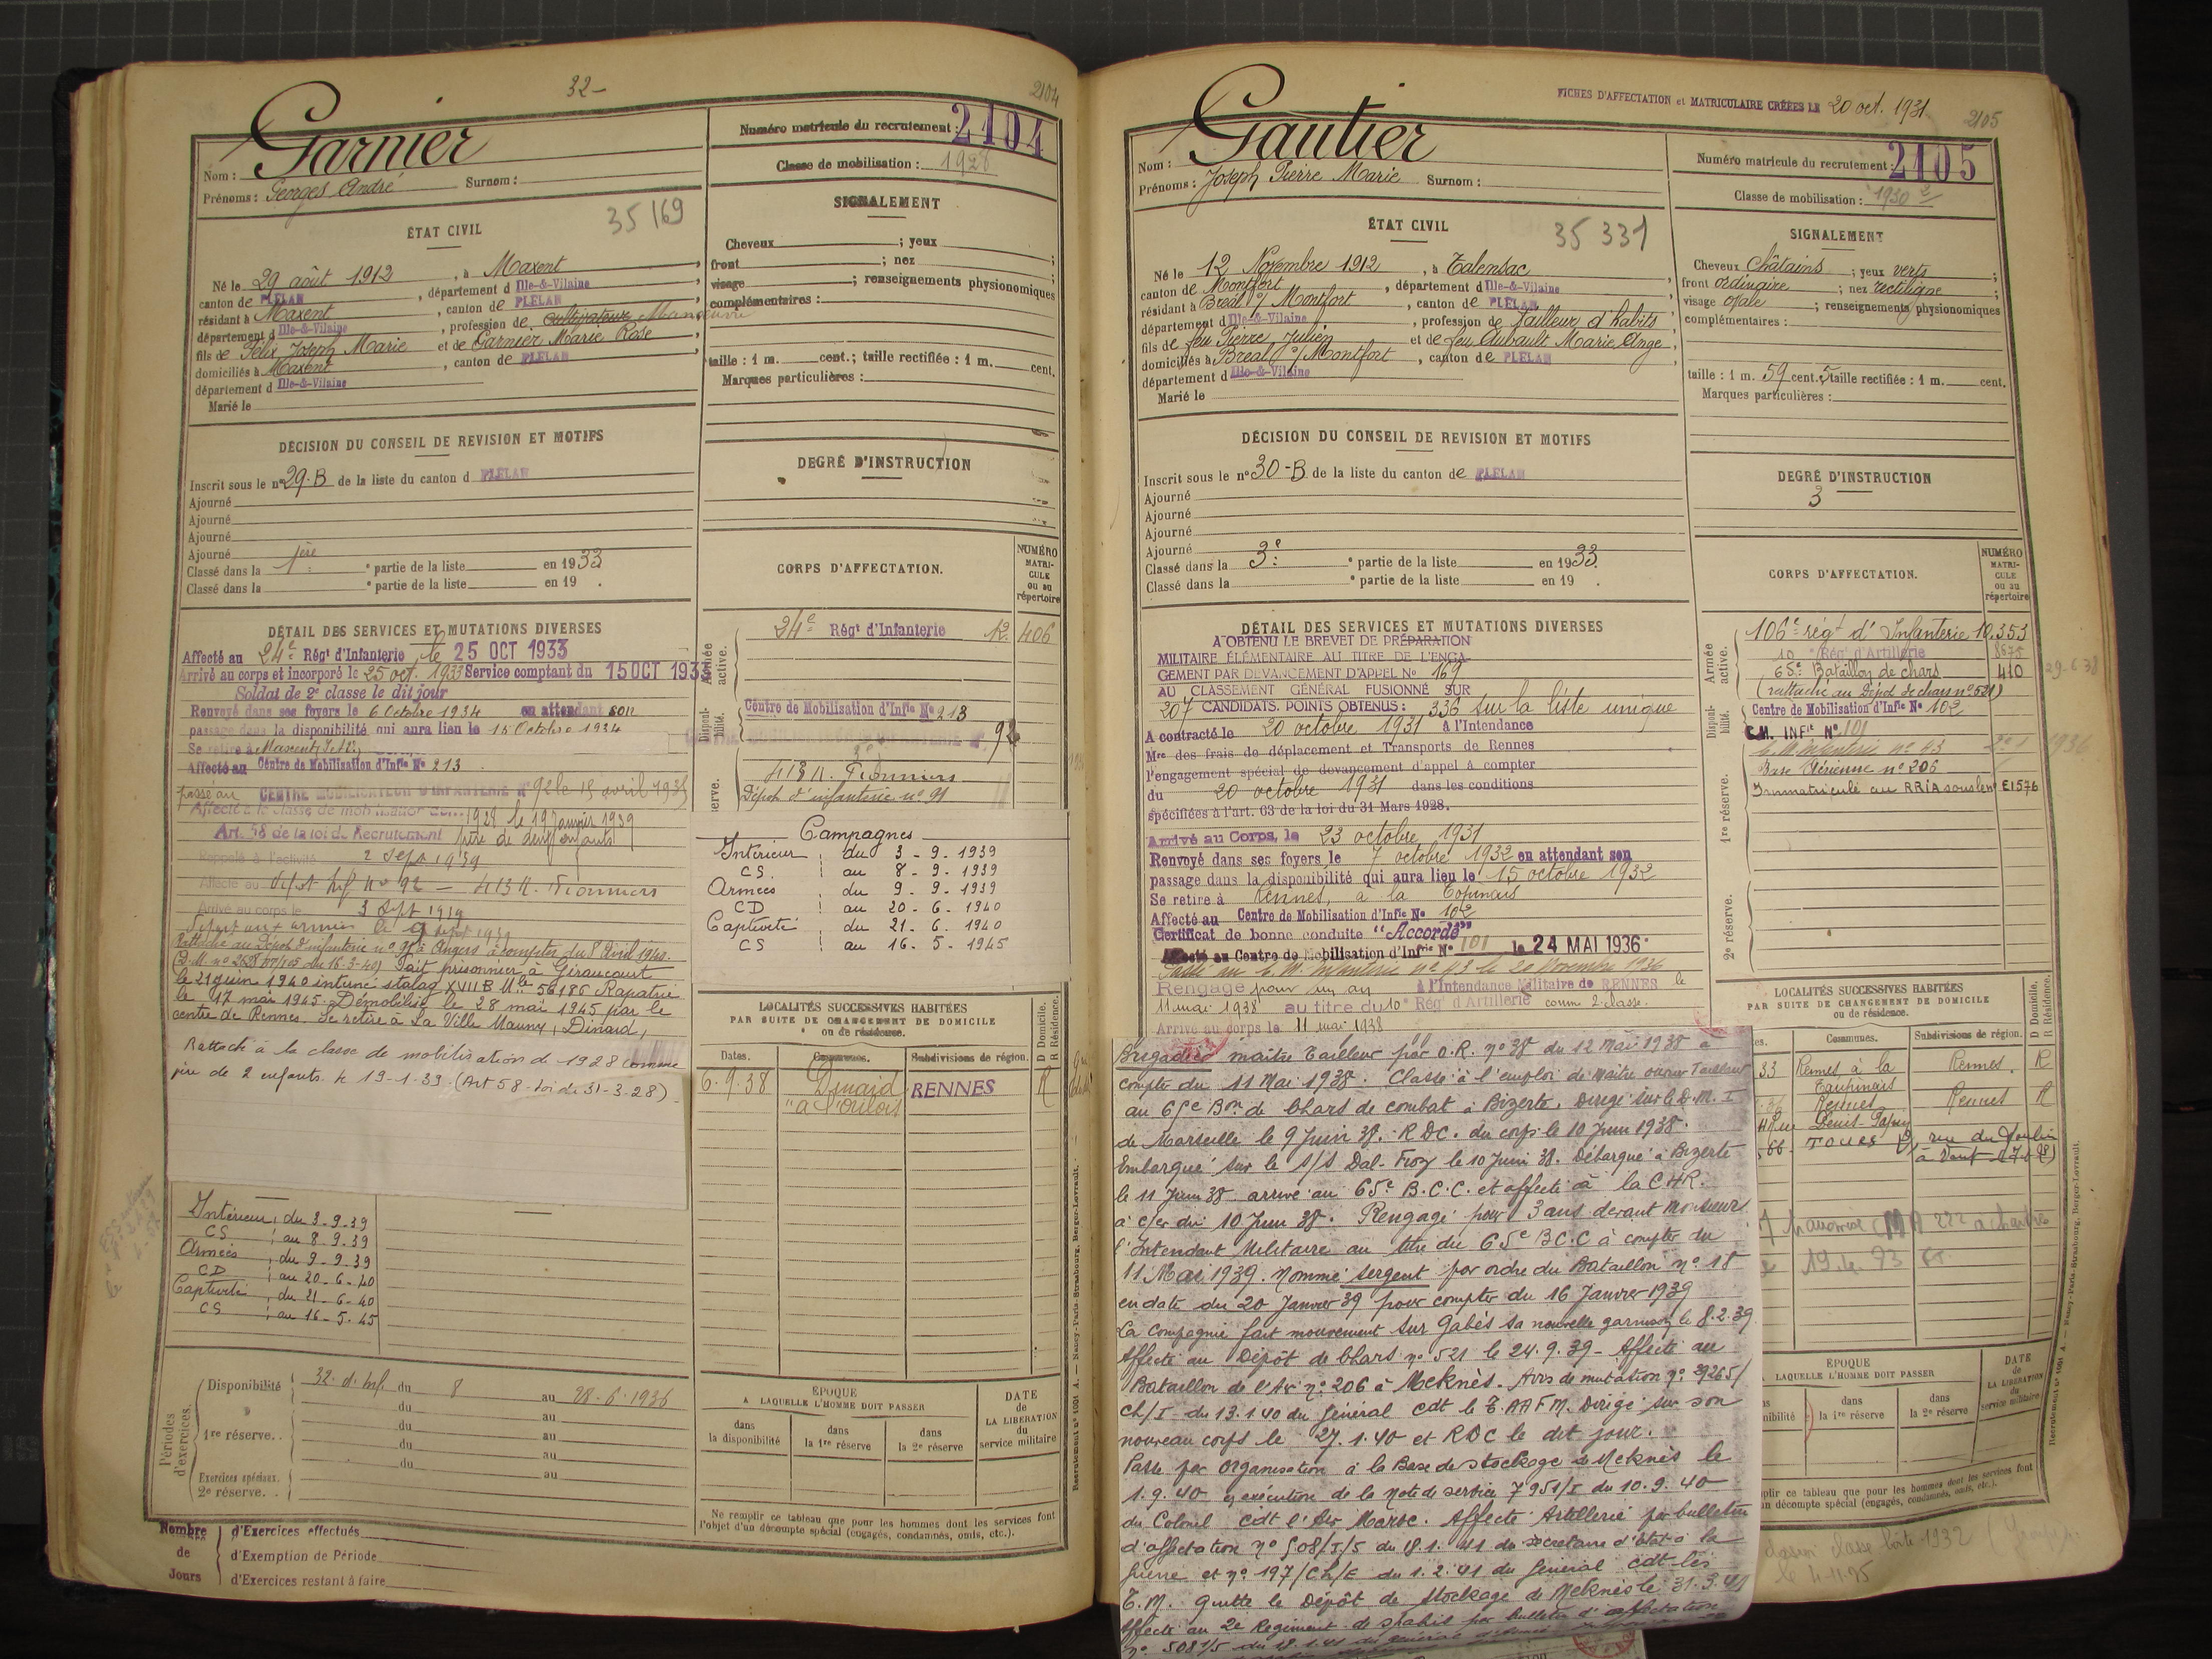 32-
2104
Garnier
Nom :
Prénoms : Georges André Surnom :
Numéro matricule du recrutement : 2104
Classe de mobilisation : 1928
ÉTAT CIVIL
35 169
Né le 29 août 1912, à Maxent
canton de PLÉLAN, département d Ille-&-Vilaine
résidant à Maxent, canton de PLÉLAN
département d Ille-&-Vilaine, profession de cultivateur Manœuvre
fils de Félix Joseph Marie et de Garnier Marie Rose
domiciliés à Maxent, canton de PLÉLAN
département d Ille-&-Vilaine
Marié le
SIGNALEMENT
Cheveux ; yeux ;
front ; nez ;
visage ; renseignements physionomiques
complémentaires :
taille : 1 m. cent.; taille rectifiée : 1 m. cent.
Marques particulières :
DÉCISION DU CONSEIL DE REVISION ET MOTIFS
Inscrit sous le no 29-B de la liste du canton d PLÉLAN
Ajourné
Ajourné
Ajourné
Ajourné
Classé dans la 1ère partie de la liste en 1933
Classé dans la partie de la liste en 19 .
DEGRÉ D'INSTRUCTION
CORPS D'AFFECTATION.
NUMÉRO MATRICULE ou au répertoire
Armée active.
24e Régt d'Infanterie 12.406
Disponibilité.
Centre de Mobilisation d'Infie No 213
92
413 R. Pionniers
Dépôt d'infanterie no 91
DÉTAIL DES SERVICES ET MUTATIONS DIVERSES
Affecté au 24e Régt d'Infanterie le 25 OCT 1933
Arrivé au corps et incorporé le 25 oct. 1933 Service comptant du 15 OCT 1933
Soldat de 2e classe le dit jour
Renvoyé dans ses foyers le 6 Octobre 1934 en attendant son
passage dans la disponibilité qui aura lieu le 15 Octobre 1934
Se retire à Maxent
Affecté au Centre de Mobilisation d'Infie No 213
passé au CENTRE MOBILISATEUR D'INFANTERIE No 92 le 18 avril 1935
Affecté à la classe de mobilisation de 1928 le 19 Janvier 1939
Art. 58 de la loi de Recrutement père de deux enfants
Rappelé à l'activité 2 Sept 1939
Affecté au dépôt Inf No 92 - 413 R. Pionniers
Arrivé au corps le 3 Sept 1939
Départ aux armées le 9 Sept 1939
Rattaché au Dépôt d'infanterie no 91 à Angers à compter du 8 Avril 1940.
Fait prisonnier à Giraucourt
le 21 juin 1940 interné stalag XVIIB Mle 56186 Rapatrié
le 17 mai 1945. Démobilisé le 28 mai 1945 par le
centre de Rennes. Se retire à La Ville Mauny, Dinard,
Rattaché à la classe de mobilisation de 1928 comme
père de 2 enfants le 19-1-39. (Art 58-Loi du 31-3-28).
Campagnes
Intérieur du 3 - 9 - 1939
CS. au 8 - 9 - 1939
Armées du 9 - 9 - 1939
CD au 20 - 6 - 1940
Captivité du 21 - 6 - 1940
CS au 16 - 5 - 1945
LOCALITÉS SUCCESSIVES HABITÉES
PAR SUITE DE CHANGEMENT DE DOMICILE
ou de résidence.
Dates. Communes. Subdivisions de région. D Domicile. R Résidence.
6.9.38 Dinard RENNES R
Intérieur du 3.9.39
CS au 8.9.39
Armées du 9.9.39
CD au 20-6-40
Captivité du 21-6-40
CS au 16-5-45
Périodes d'exercices.
Disponibilité 32. d. Inf. du 8 au 28-6-1936
du au
1re réserve. . du au
du au
du au
Exercices spéciaux. 2e réserve. . au
ÉPOQUE
A LAQUELLE L'HOMME DOIT PASSER
dans la disponibilité
dans la 1re réserve
dans la 2e réserve
DATE de LA LIBERATION du service militaire
Ne remplir ce tableau que pour les hommes dont les services font
l'objet d'un décompte spécial (engagés, condamnés, omis, etc.).
Nombre de Jours
d'Exercices effectués
d'Exemption de Période
d'Exercices restant à faire
Recrutement no 1001 A. — Nancy-Paris-Strasbourg, Berger-Levrault.
FICHES D'AFFECTATION et MATRICULAIRE CRÉÉES LE 20 oct. 1931
2105
Gautier
Nom :
Prénoms : Joseph Pierre Marie Surnom :
Numéro matricule du recrutement : 2105
Classe de mobilisation : 1930 2
ÉTAT CIVIL
35 331
Né le 12 Novembre 1912, à Talensac
canton de Montfort, département d Ille-&-Vilaine
résidant à Bréal s/ Montfort, canton de PLÉLAN
département d Ille-&-Vilaine, profession de tailleur d'habits
fils de feu Pierre Julien et de feu Aubault Marie Ange,
domiciliés à Bréal s/ Montfort, canton de PLÉLAN
département d Ille-&-Vilaine
Marié le
SIGNALEMENT
Cheveux châtains ; yeux verts ;
front ordinaire ; nez rectiligne ;
visage ovale ; renseignements physionomiques
complémentaires :
taille : 1 m. 59 cent. 5 taille rectifiée : 1 m. cent.
Marques particulières :
DÉCISION DU CONSEIL DE REVISION ET MOTIFS
Inscrit sous le no 30-B de la liste du canton de PLÉLAN
Ajourné
Ajourné
Ajourné
Ajourné
Classé dans la 3e partie de la liste en 1933.
Classé dans la partie de la liste en 19 .
DEGRÉ D'INSTRUCTION
3
CORPS D'AFFECTATION.
NUMÉRO MATRICULE ou au répertoire
Armée active.
106e régt d'Infanterie 10.353
10 e Rég. d'Artillerie 8675
65e Bataillon de chars 410 29-6-38
(rattaché au Dépôt de chars no 521)
Disponibilité.
Centre de Mobilisation d'Infie No 102
C.M. INFie No 101
C. M. Infanterie no 43 1936
1re réserve.
Base Aérienne no 206
Immatriculé au RRIA sous le no E1576
2e réserve.
DÉTAIL DES SERVICES ET MUTATIONS DIVERSES
A OBTENU LE BREVET DE PRÉPARATION
MILITAIRE ÉLÉMENTAIRE AU TITRE DE L'ENGA-
GEMENT PAR DEVANCEMENT D'APPEL No 169
AU CLASSEMENT GÉNÉRAL FUSIONNÉ SUR
207 CANDIDATS. POINTS OBTENUS : 336 sur la liste unique
A contracté le 20 octobre 1931 à l'Intendance
Mre des frais de déplacement et Transports de Rennes
l'engagement spécial de devancement d'appel à compter
du 20 octobre 1931 dans les conditions
spécifiées à l'art. 63 de la loi du 31 Mars 1928.
Arrivé au Corps, le 23 octobre 1931
Renvoyé dans ses foyers le 7 octobre 1932 en attendant son
passage dans la disponibilité qui aura lieu le 15 octobre 1932
Se retire à Rennes, à la Topinais
Affecté au Centre de Mobilisation d'Infie No 102
Certificat de bonne conduite "Accordé"
Affecté au Centre de Mobilisation d'Infie No 101 le 24 MAI 1936
Passé au C. M. Infanterie no 43 le 20 Novembre 1936
Rengagé pour un an à l'Intendance Militaire de RENNES le
11 mai 1938 au titre du 10e Rég. d'Artillerie comme 2e classe.
Arrivé au corps le 11 mai 1938
Brigadier maître tailleur par O.R. no 38 du 12 Mai 1938 à
compter du 11 Mai 1938. Classé à l'emploi de Maître ouvrier Tailleur
au 65e Bon de Chars de combat à Bizerte. Dirigé sur le D.M.I
de Marseille le 9 Juin 38. RDC. du corps le 10 Juin 1938.
Embarqué sur le S/S Dal-Piaz le 10 Juin 38. Débarqué à Bizerte
le 11 Juin 38 arrivé au 65e B.C.C. et affecté à la CHR.
à c/er du 10 Juin 38. Rengagé pour 3 ans devant Monsieur
l'Intendant Militaire au titre du 65e BC.C à compter du
11 Mai 1939. Nommé sergent par ordre du Bataillon no 18
en date du 20 Janvier 39 pour compter du 16 Janvier 1939
La Compagnie fait mouvement sur Gabès sa nouvelle garnison le 8.2.39.
Affecté au Dépôt de Chars no 521 le 24.9.39 - Affecté au
Bataillon de l'Air no 206 à Meknès. Avis de mutation no 9265/
Ch/I du 13.1.40 du Général Cdt le T.AAFM. Dirigé sur son
nouveau corps le 27.1.40 et RDC le dit jour.
Passé par Organisation à la Base de stockage de Meknès le
1.9.40 en exécution de la Note de service 7951/I du 10.9.40
du Colonel Cdt l'Air Maroc. Affecté Artillerie par bulletin
d'affectation no 508/I/5 du 18.1.41 du secrétaire d'état à la
guerre et no 197/Ch/E du 1.2.41 du Général Cdt les
T.M. quitte le Dépôt de Stockage de Meknès le 31.3.41
Affecté au 2e Régiment de spahis par bulletin d'affectation
no 508 I/5 du 18.1.41 du général
LOCALITÉS SUCCESSIVES HABITÉES
PAR SUITE DE CHANGEMENT DE DOMICILE
ou de résidence.
Communes. Subdivisions de région. D Domicile. R Résidence.
33 Rennes, à la Taupinais Rennes. R
Rennes Rennes R
Rue Denis-Papin
TOURS
ÉPOQUE
A LAQUELLE L'HOMME DOIT PASSER
dans la 1re réserve
dans la 2e réserve
DATE de LA LIBERATION du service militaire
remplir ce tableau que pour les hommes dont les services font
un décompte spécial (engagés, condamnés, omis, etc.).
Recrutement no 1001 A. — Nancy-Paris-Strasbourg, Berger-Levrault.